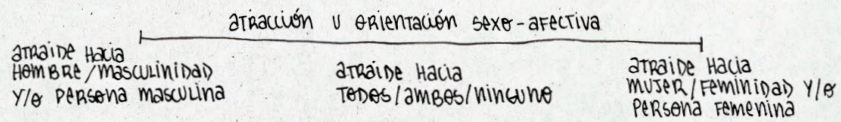 atracción u orientación sexo-afectiva
atraide hacia
hombre/masculinidad
y/o persona masculina
atraide hacia
todes/ambes/ninguno
atraide hacia
mujer/feminidad y/o
persona femenina